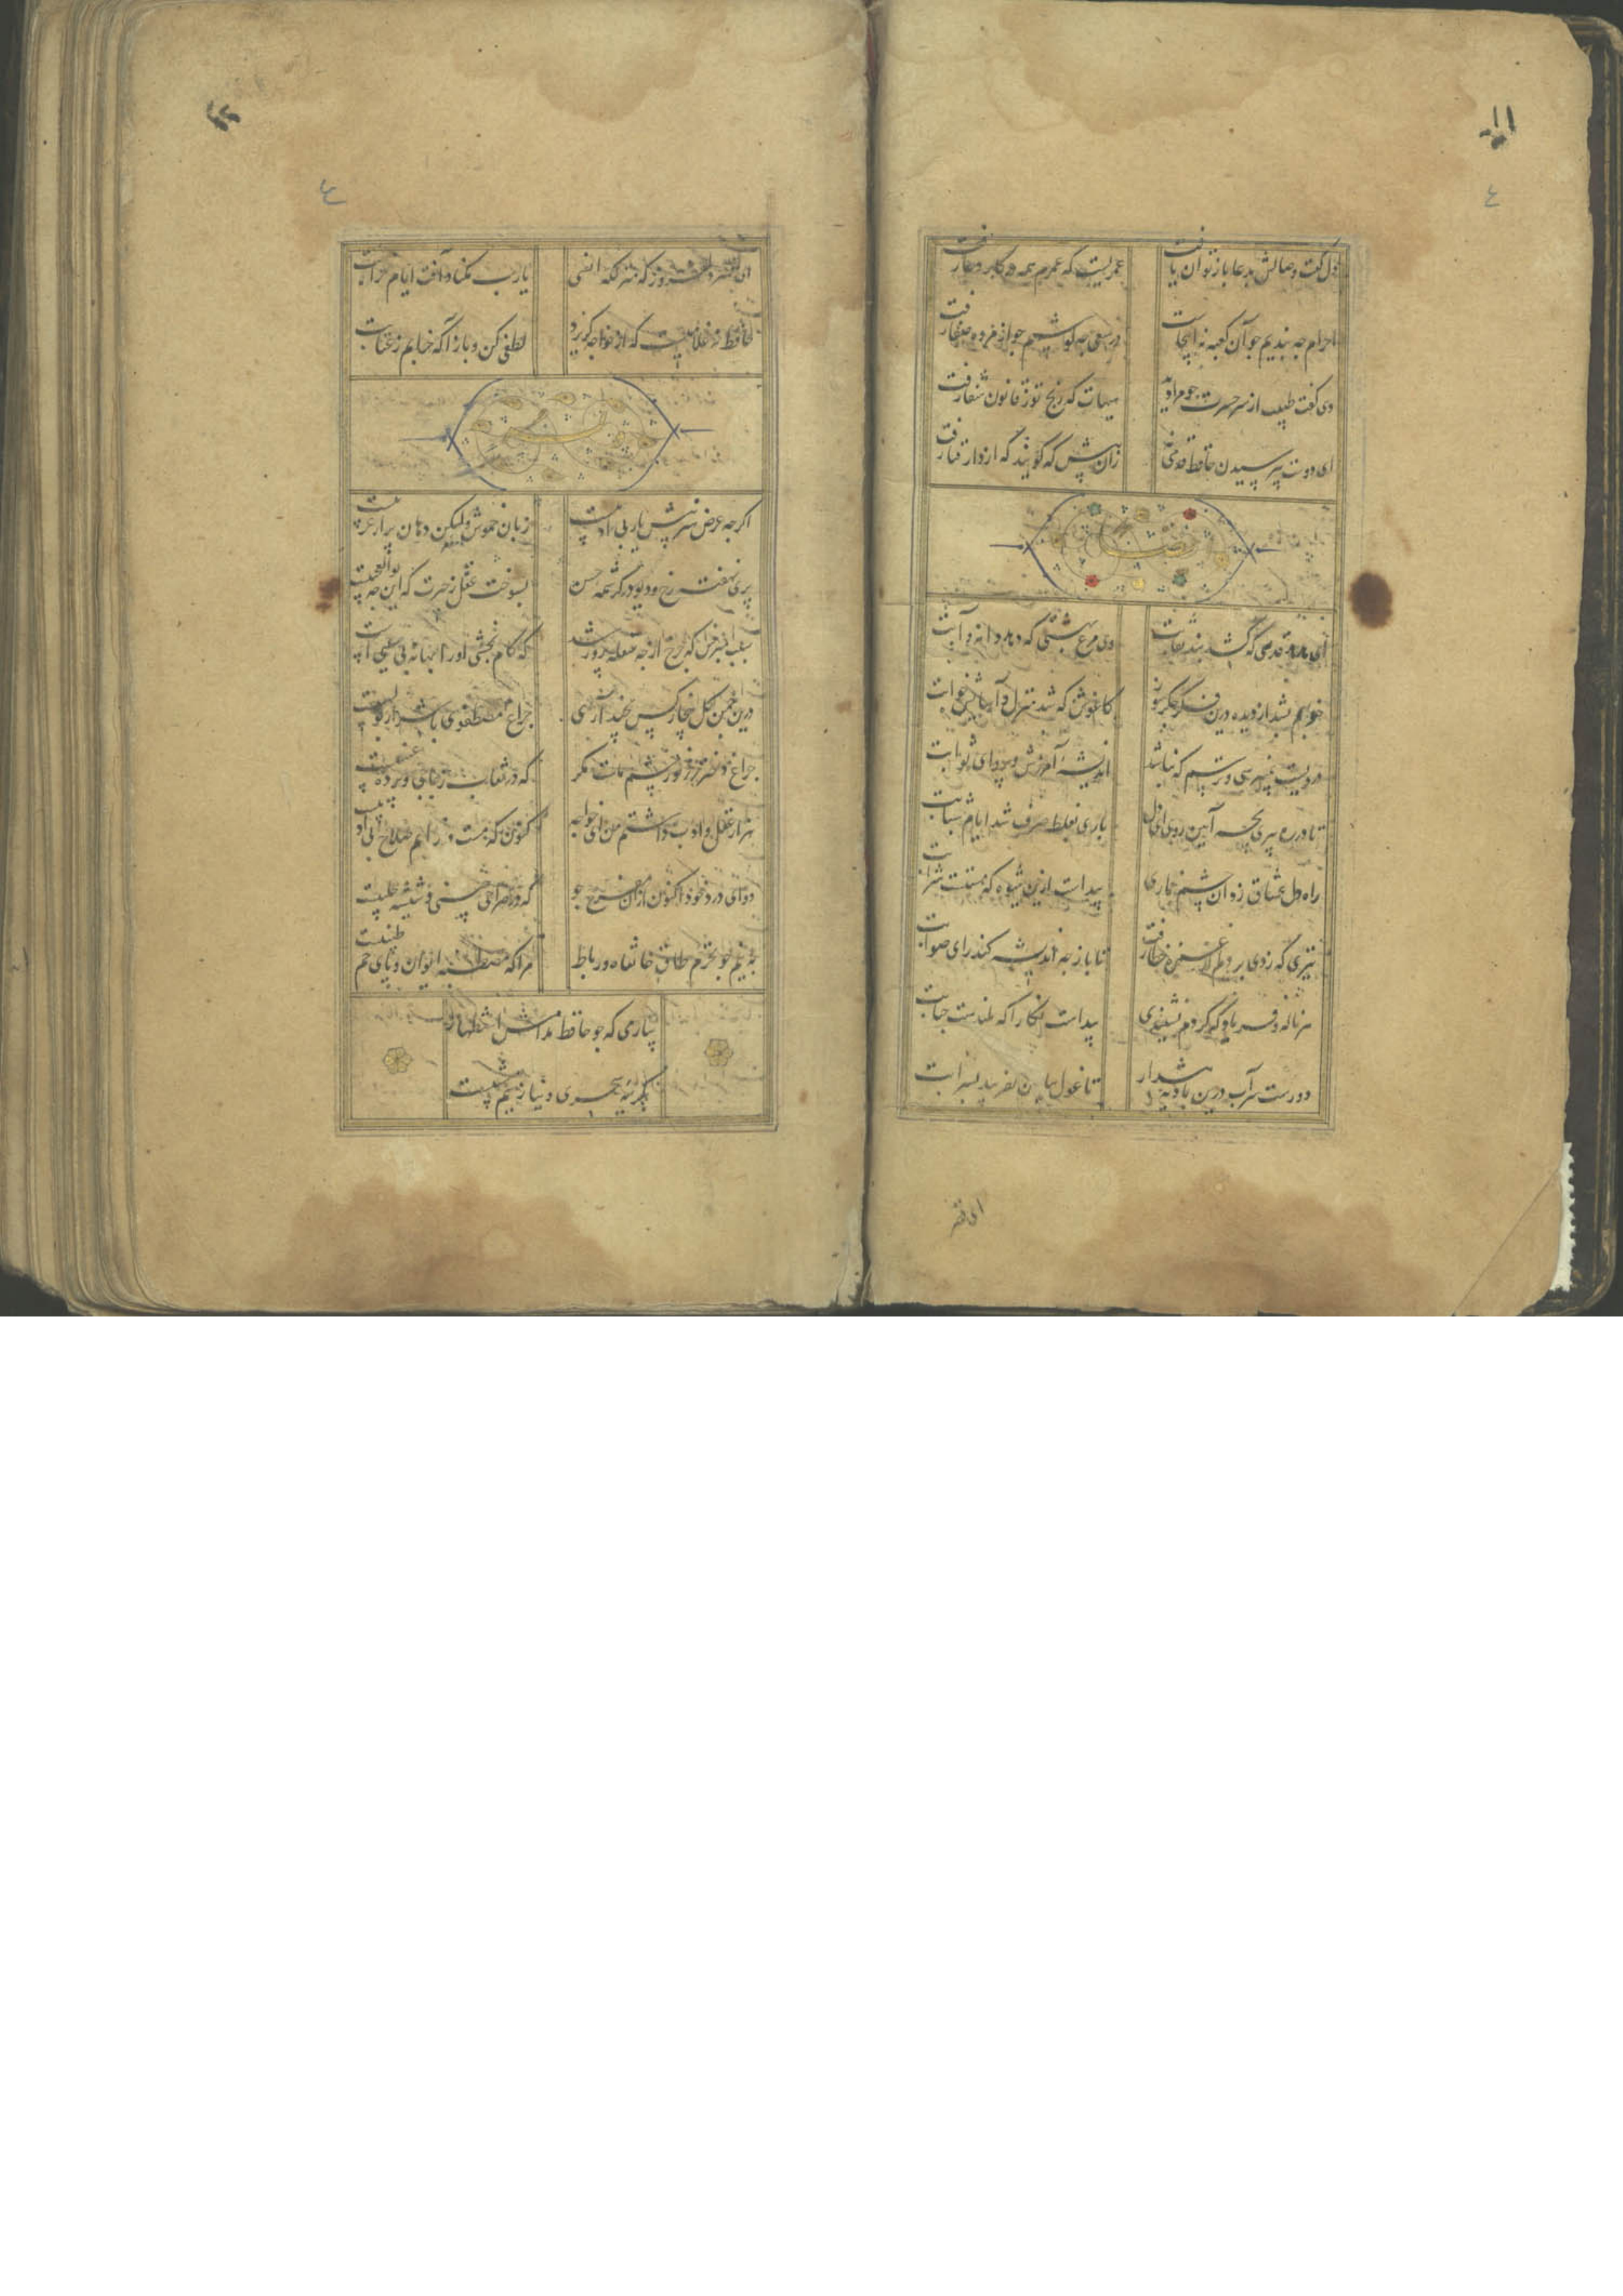 ۱۱
٤
دل گفت وصالش بدعا باز توان یافت
عمریست که عمرم همه در کار دعا رفت
احرام چه بندیم چو آن کعبه نه اینجاست
در سعی چه کوشیم چو از مروه صفا رفت
دی گفت طبیب از سر حسرت چو مرا دید
هیهات که رنج تو ز قانون شفا رفت
ای دوست بپرسیدن حافظ قدمی نه
زان پیش که گویند که از دار فنا رفت
ای شاهد قدسی که کشد بند نقابت
وی مرغ بهشتی که دهد دانه و آبت
خوابم بشد از دیده درین فکر جگرسوز
کاغوش که شد منزل و آسایش و خوابت
درویش نمی‌پرسی و ترسم که نباشد
اندیشه آمرزش و پروای ثوابت
تا در ره پیری بچه آیین روی ای دل
باری بغلط صرف شد ایام شبابت
راه دل عشاق زد آن چشم خماری
پیداست ازین شیوه که مستست شرابت
تیری که زدی بر دلم از غمزه خطا رفت
تا باز چه اندیشه کند رای صوابت
هر ناله و فریاد که کردم نشنیدی
پیداست نگارا که بلندست جنابت
دورست سر آب درین بادیه هشدار
تا غول بیابان نفریبد بسرابت
ای قصر
٤
ای قصر دل‌افروز که منزلگه انسی
یارب مکناد آفت ایام خرابت
حافظ نه غلامیست که از خواجه گریزد
لطفی کن و باز آ که خرابم ز عتابت
اگرچه عرض هنر پیش یار بی ادبیست
زبان خموش ولیکن دهان پر از عربیست
پری نهفته رخ و دیو در کرشمه حسن
بسوخت عقل ز حیرت که این چه بوالعجبیست
سبب مپرس که چرخ از چه سفله پرور شد
که کام بخشی او را بهانه بی سببی است
درین چمن گل بیخار کس نچید آری
چراغ مصطفوی با شرار بولهبیست
که در نقاب زجاجی و پرده عنبیست
هزار عقل و ادب داشتم من ای خواجه
کنون که مست و خرابم صلاح بی ادبیست
دوای درد خود اکنون از آن مفرح جو
که در صراحی چینی و شیشه حلبیست
به نیم جو نخرم طاق خانقاه و رباط
مرا که مصطبه ایوان و پای خم طنبیست
بیار می که چو حافظ مدامش استظهار
بگریه سحری و نیاز نیم شبیست